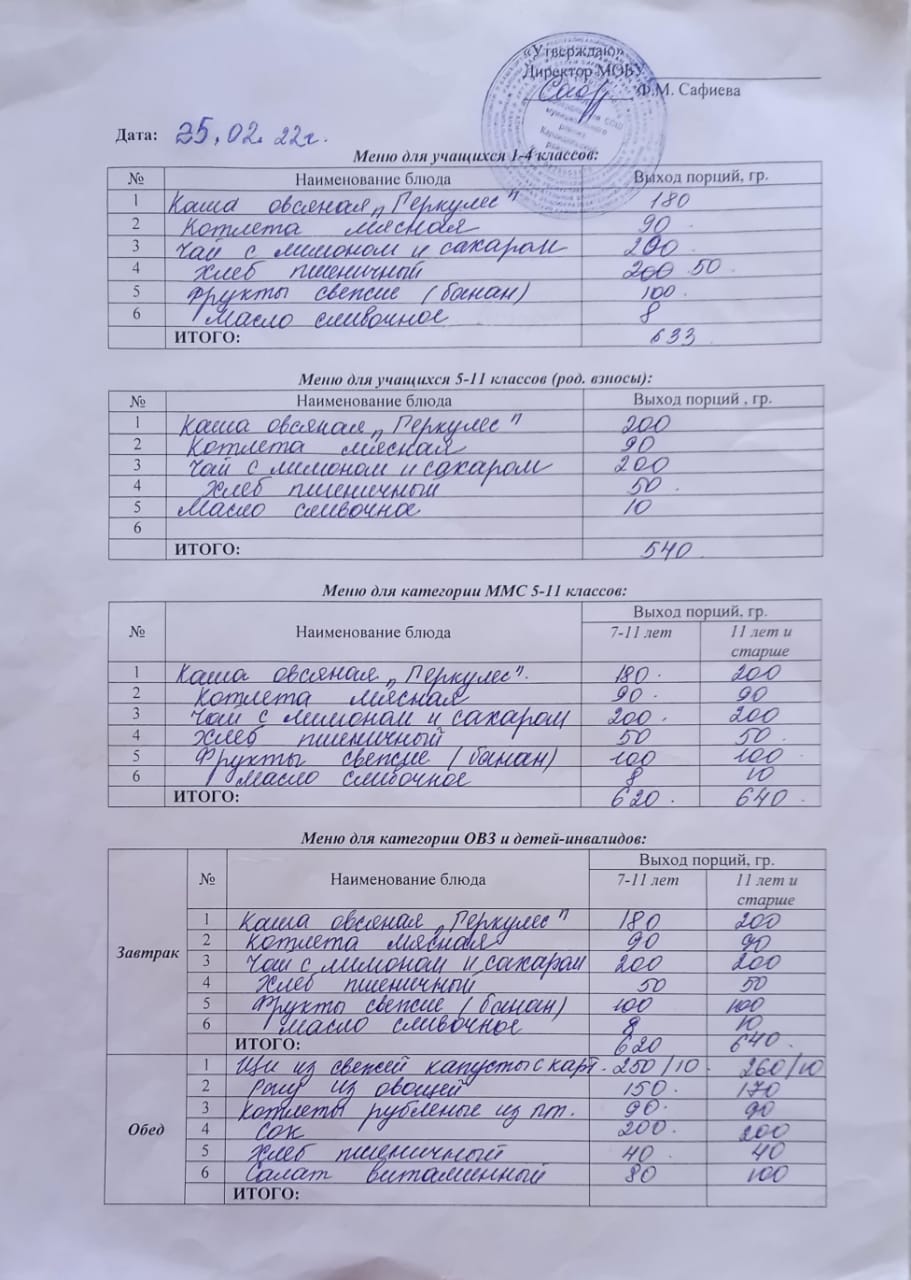 «Утверждаю»
Директор МОБУ
Ф.М. Сафиева
Дата: 25.02.22г.
Меню для учащихся 1-4 классов:
№ Наименование блюда Выход порций, гр.
1 Каша овсяная „Геркулес" 180
2 Котлета мясная 90
3 Чай с лимоном и сахаром 200
4 Хлеб пшеничный 200 50
5 Фрукты свежие (банан) 100
6 Масло сливочное 8
ИТОГО: 633
Меню для учащихся 5-11 классов (род. взносы):
№ Наименование блюда Выход порций , гр.
1 Каша овсяная „Геркулес" 200
2 Котлета мясная 90
3 Чай с лимоном и сахаром 200
4 Хлеб пшеничный 50
5 Масло сливочное 10
6
ИТОГО: 540
Меню для категории ММС 5-11 классов:
№ Наименование блюда Выход порций, гр.
7-11 лет 11 лет и старше
1 Каша овсяная „Геркулес". 180 200
2 Котлета мясная 90 90
3 Чай с лимоном и сахаром 200 200
4 Хлеб пшеничный 50 50
5 Фрукты свежие (банан) 100 100
6 Масло сливочное 8 10
ИТОГО: 620 640
Меню для категории ОВЗ и детей-инвалидов:
№ Наименование блюда Выход порций, гр.
7-11 лет 11 лет и старше
Завтрак
1 Каша овсяная „Геркулес" 180 200
2 Котлета мясная 90 90
3 Чай с лимоном и сахаром 200 200
4 Хлеб пшеничный 50 50
5 Фрукты свежие (банан) 100 100
6 Масло сливочное 8 10
ИТОГО: 620 640
Обед
1 Щи из свежей капусты с карт. 250/10 260/10
2 Рагу из овощей 150 170
3 Котлеты рубленые из пт. 90 90
4 Сок 200 200
5 Хлеб пшеничный 40 40
6 Салат витаминный 80 100
ИТОГО: